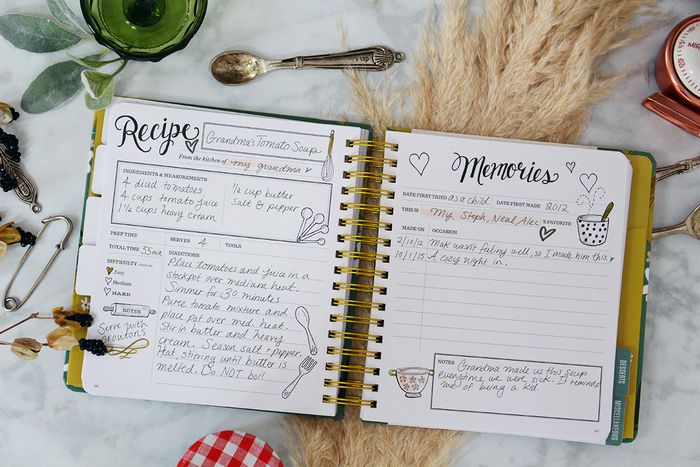 Recipe
Grandma's Tomato Soup
From the kitchen of my grandma
INGREDIENTS & MEASUREMENTS
4 diced tomatoes
4 cups tomato juice
1 1/2 cups heavy cream
1/4 cup butter
Salt & pepper
PREP TIME
SERVES 4
TOOLS
TOTAL TIME 55min
DIFFICULTY
Easy
Medium
HARD
NOTES
Serve with
croutons
DIRECTIONS
Place tomatoes and juice in a
stockpot over medium heat.
Simmer for 30 minutes
Puree tomato mixture and
place pot over med. heat.
Stir in butter and heavy
cream. Season salt + pepper.
Heat, stirring until butter is
melted. Do NOT boil
Memories
DATE FIRST TRIED as a child
DATE FIRST MADE 2012
THIS IS My, Steph, Neal, Alec 'S FAVORITE
MADE ON
OCCASION
2/10/12 Mak wasn't feeling well, so I made him this.
10/1/15 A cozy night in.
NOTES
Grandma made us this soup
everytime we were sick. It reminds
me of being a kid.
DESSERTS
MISCELLANEOUS
1 tsp